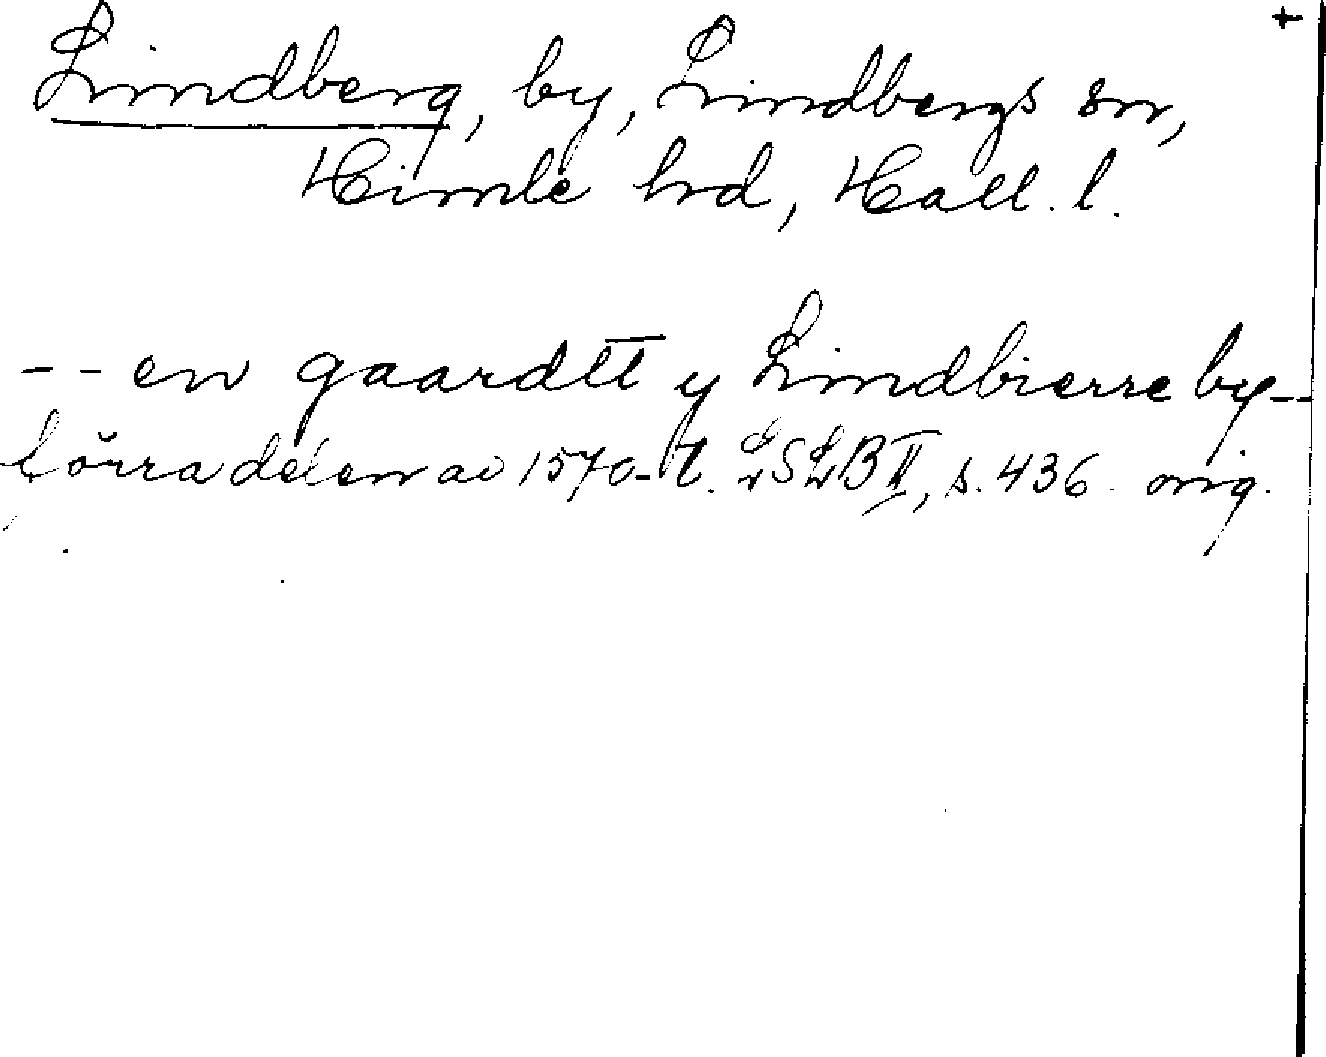 +
Lindberg, by, Lindbergs sn,
Himle hrd, Hall. l.
-- en gaardtt y Lindbierre by--
förra delen av 1570-t. LSLB II, s. 436 orig.